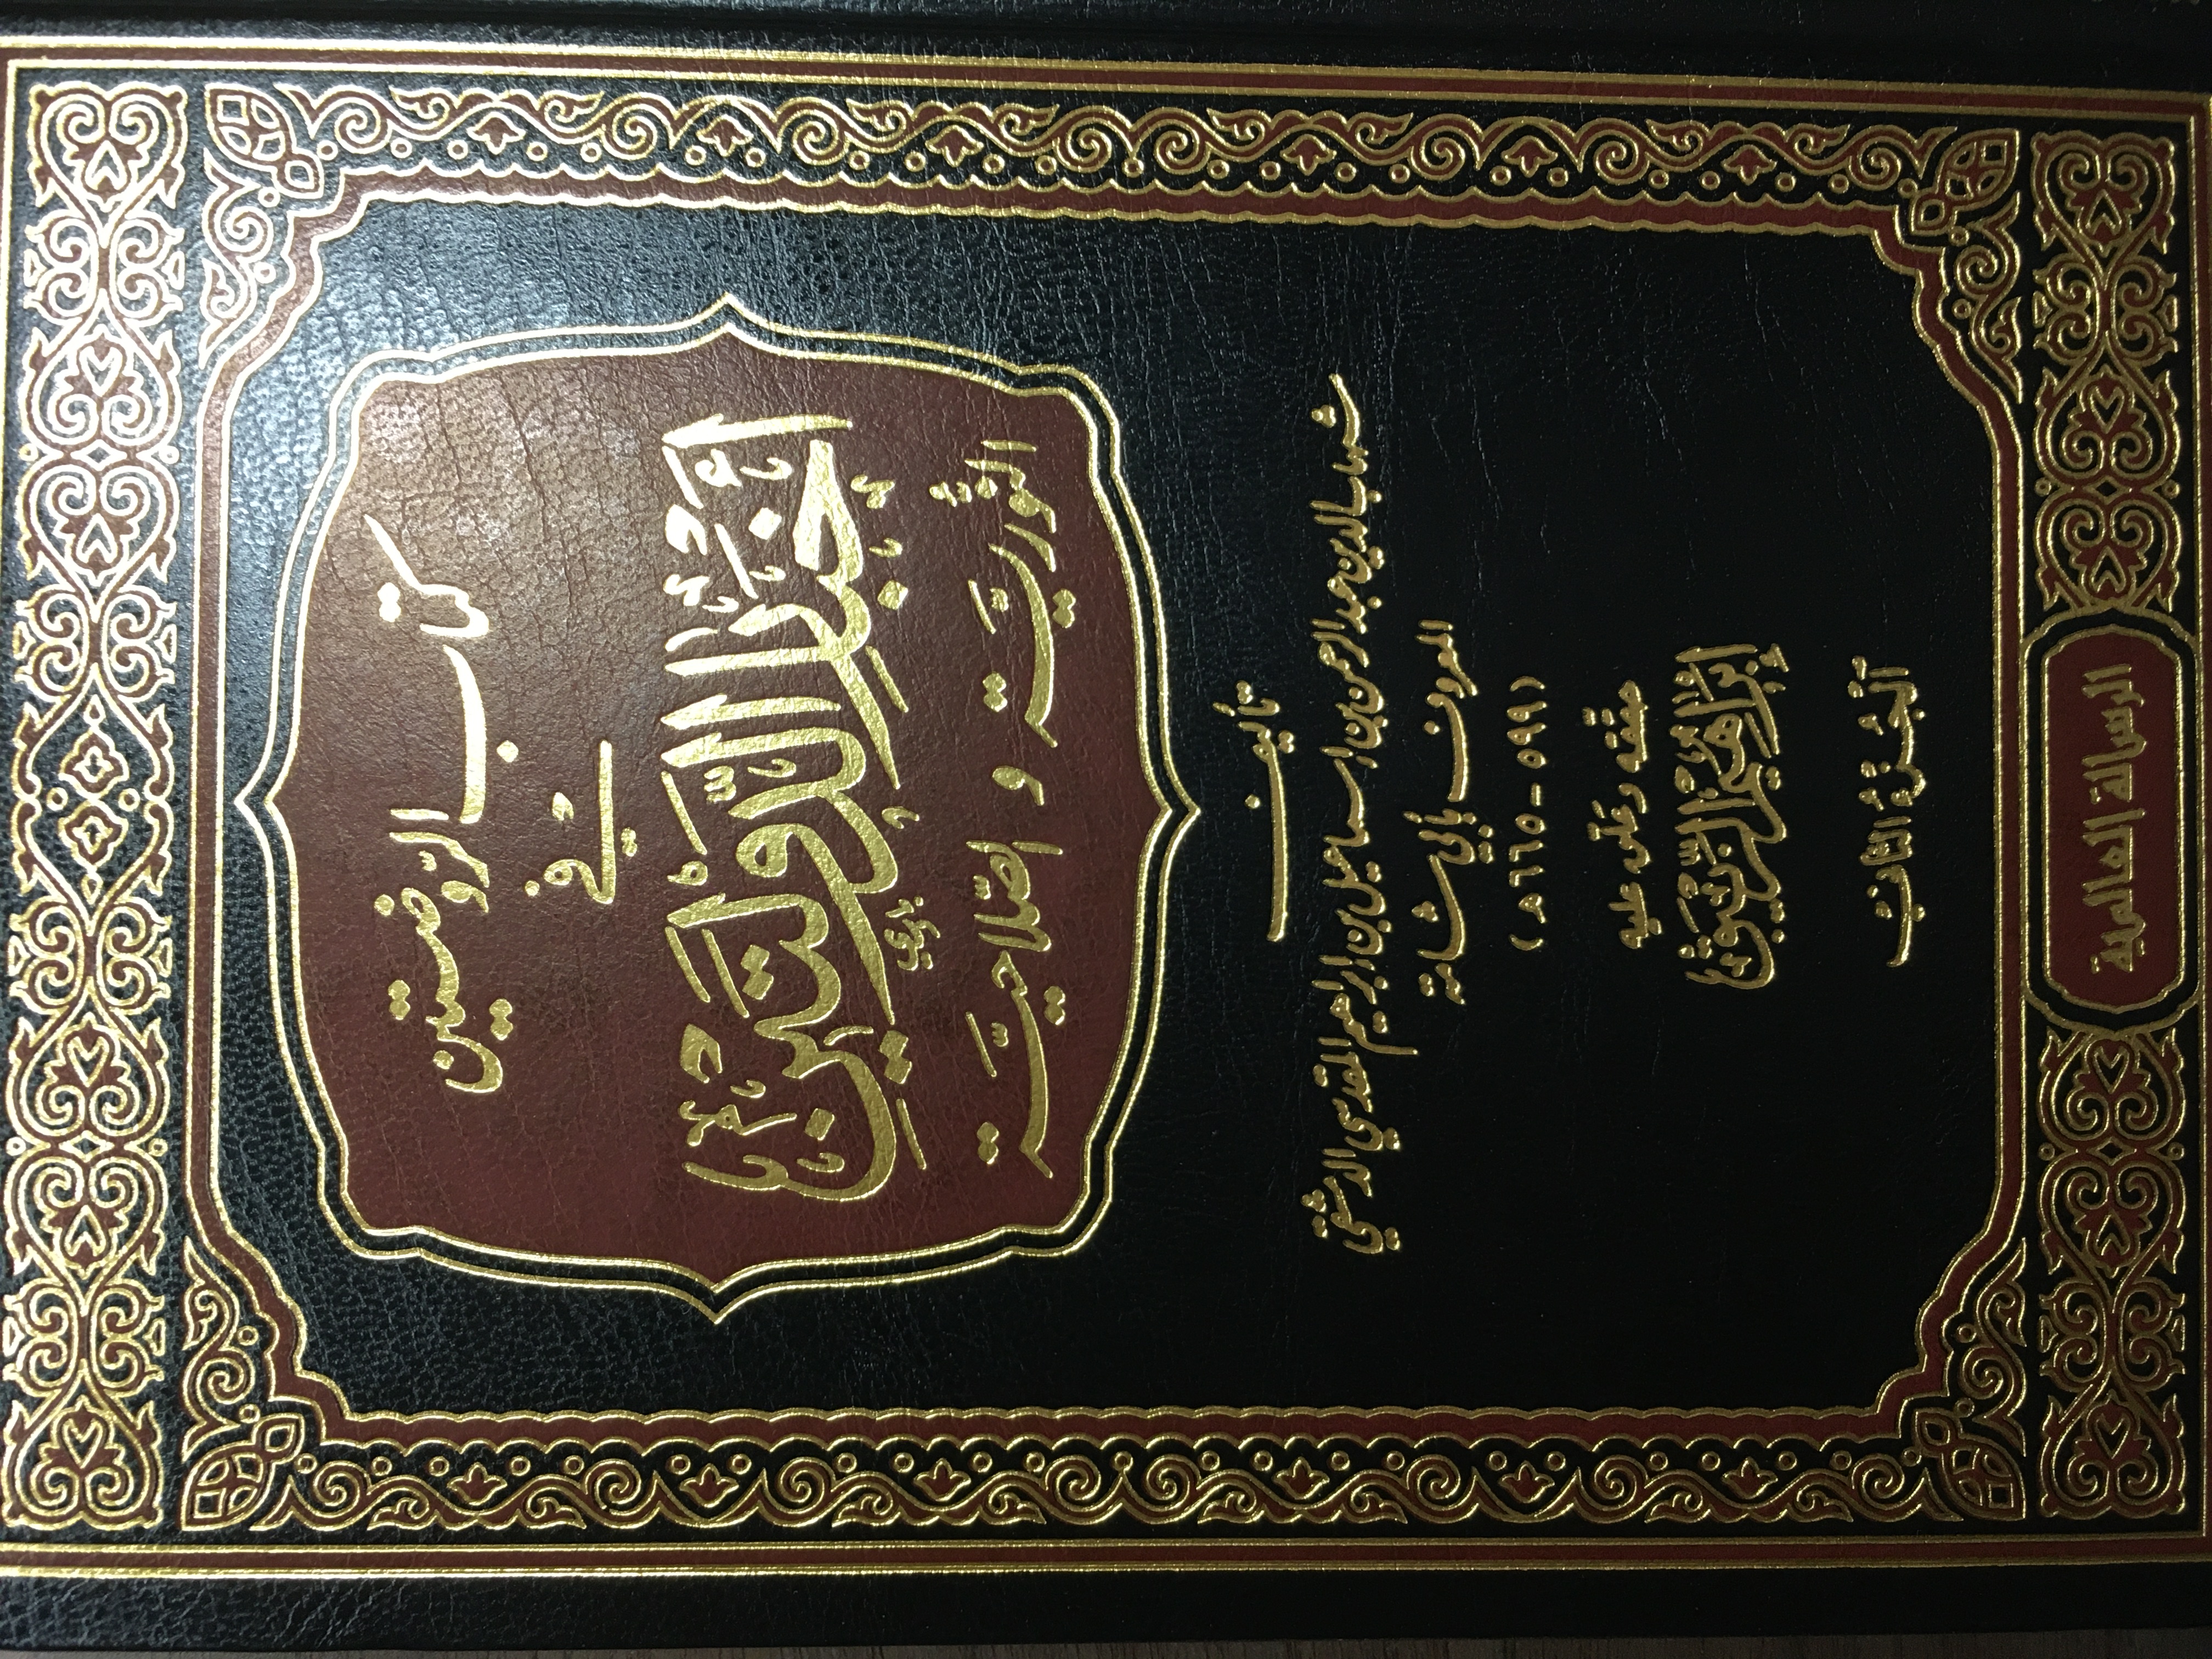 كتاب الروضتين
في
أخبار الدولتين
النورية و الصلاحية
تأليف
شهاب الدين عبد الرحمن بن إسماعيل بن إبراهيم المقدسي الدمشقي
المعروف بأبي شامة
(٥٩٩ - ٦٦٥ هـ)
حققه وعلق عليه
إبراهيم الزيبق
الجزء الثالث
الرسالة العالمية